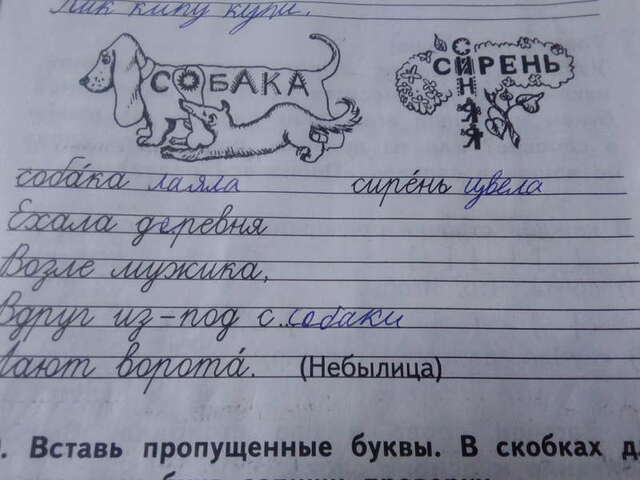 Как кипу купи.
СОБАКА СИРЕНЬ
СИНЯЯ
собáка лаяла сирéнь цвела
Ехала деревня
Возле мужика,
Вдруг из-под с..собаки
Лают воротá. (Небылица)
. Вставь пропущенные буквы. В скобках д